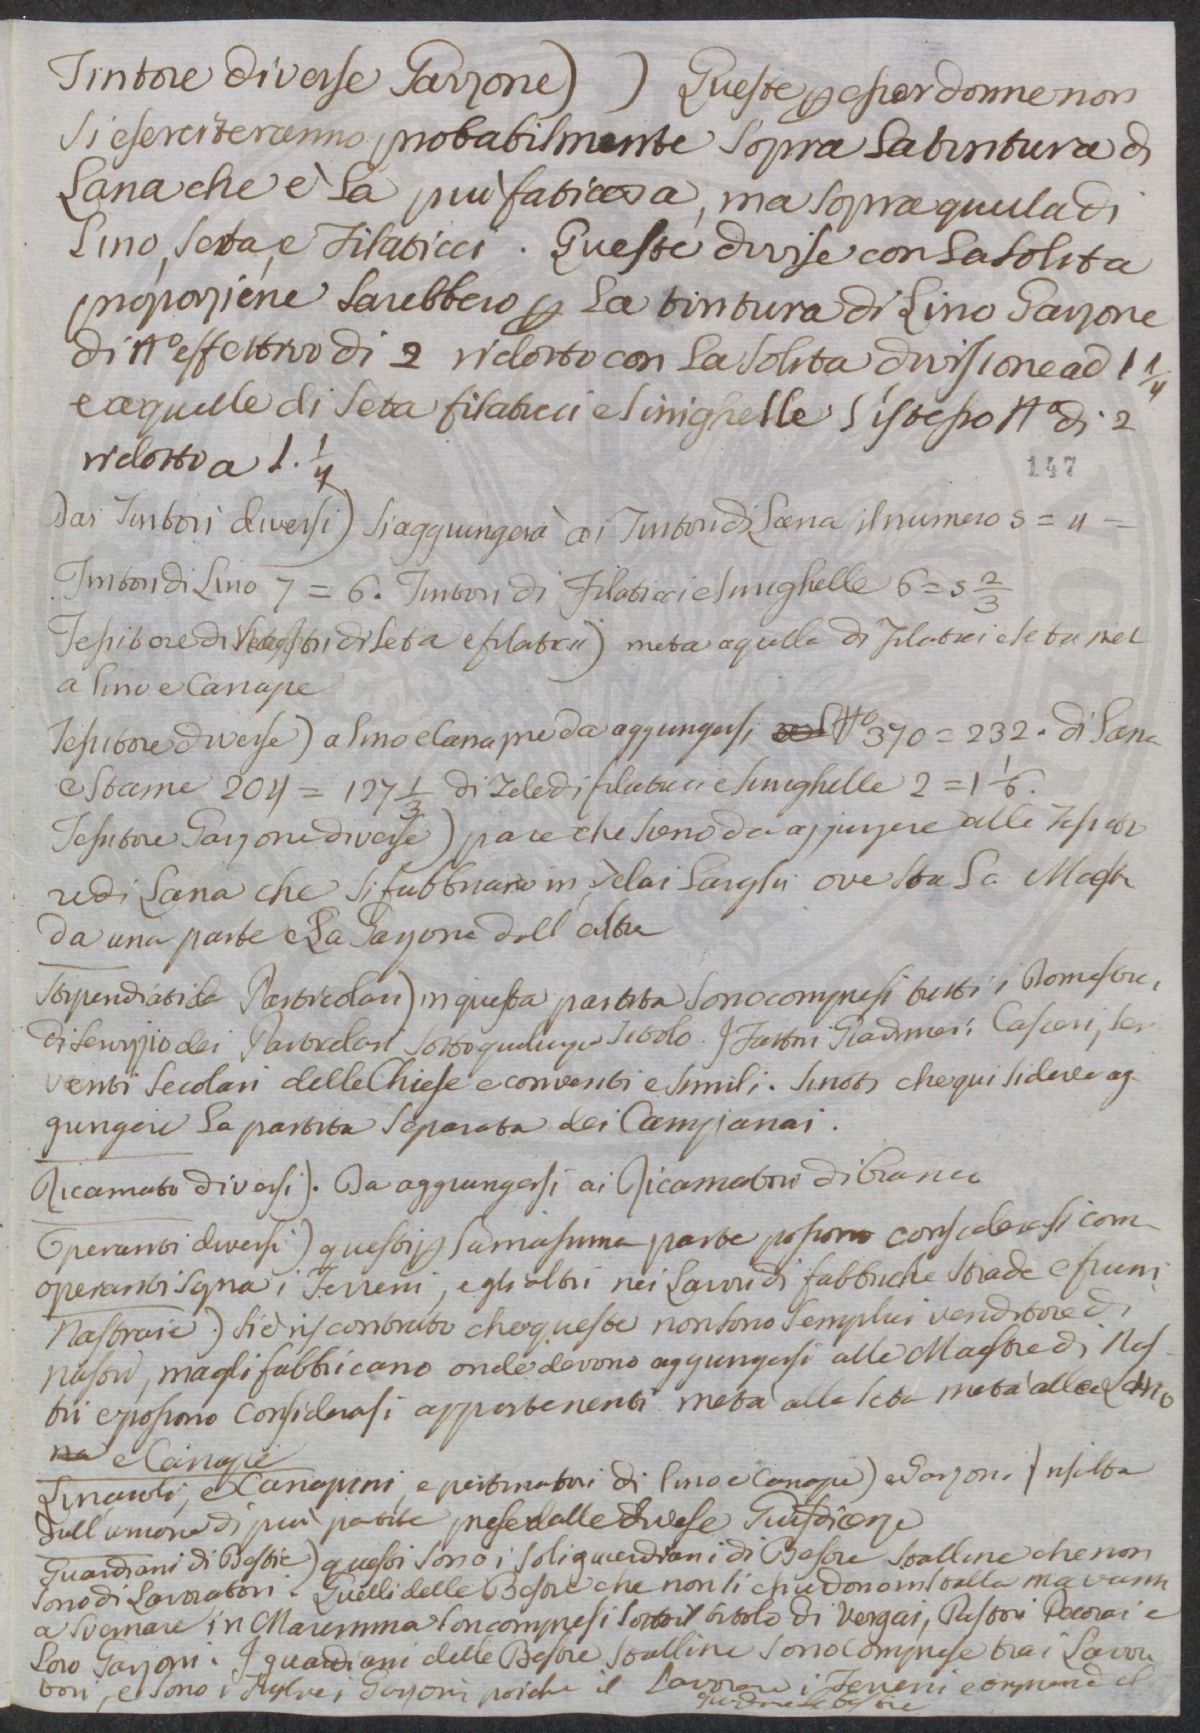 Tintore diverse Garzone) ) Queste p esser donne non
si eserciteranno probabilmente sopra la tintura di
Lana che è la più faticosa, ma sopra quella di
Lino, seta, e Filaticci. Queste divise con la solita
proporzione sarebbero p la tintura di Lino Garzone
di No effettivo di 2 ridotto con la solita divisione ad 1 1/4
e a quelle di seta filaticci e sinighelle l'istesso No di 2
ridotto a 1. 1/4
147
Dai Tintori diversi) si aggiungerà ai Tintori di Lana il numero 5 = 4 =
Tintori di Lino 7 = 6. Tintori di Filaticci e sinighelle 6 = 5 2/3
Tessitore di di seta e filaticci) metà a quella di Filaticci e seta metà
a lino e Canape
Tessitore diverse) a lino e canape da aggiungersi No 370 = 232. di Lana
e Stame 204 = 127 1/3 di Tele di filaticci e sinighelle 2 = 1 1/6.
Tessitore Garzone diverse) pare che sieno da aggiungere alle Tessito
re di Lana che si fabbricano in Telai Larghi ove sta la Maestra
da una parte e La Garzona dall altra
Stipendiati da Particolari) in questa partita sono compresi tutti i Domestici,
di servizio dei Particolari sotto qualunque titolo. I Fattori Giardinieri Casieri, ser
venti secolari delle Chiese e conventi e simili. Si noti che qui si deve ag-
giungere la partita separata dei Campanai.
Ricamato diversi). Da aggiungersi ai Ricamatori di bianco
Operanti diversi) questi p la massima parte possono considerarsi come
operanti sopra i Terreni, e gli altri nei Lavori di fabbriche strade e fiumi
Nastraie) Si è riscontrato che queste non sono semplici venditore di
nastri, ma gli fabbricano onde devono aggiungersi alle Maestre di Nas-
tri e possono considerarsi appartenenti metà alla seta metà alla Lino
na e Canape
Linaioli, e Canapini, e pettinatori di lino e canape) e Garzoni) risulta
dall'unione di più partite prese dalle diverse Giusdicenze
Guardiani di Bestie) questi sono i soli guardiani di Bestie stalline che non
sono di Lavoratori. Quelli delle Bestie che non si chiudono in stalla ma vanno
a svernare in Maremma son compresi sotto il titolo di Vergai, Pastori Pecorai e
Loro Garzoni. I guardiani delle Bestie stalline sono comprese tra i Lavora
tori, e sono i Garzoni poiche il Lavorare i Terreni e
guardare le bestie